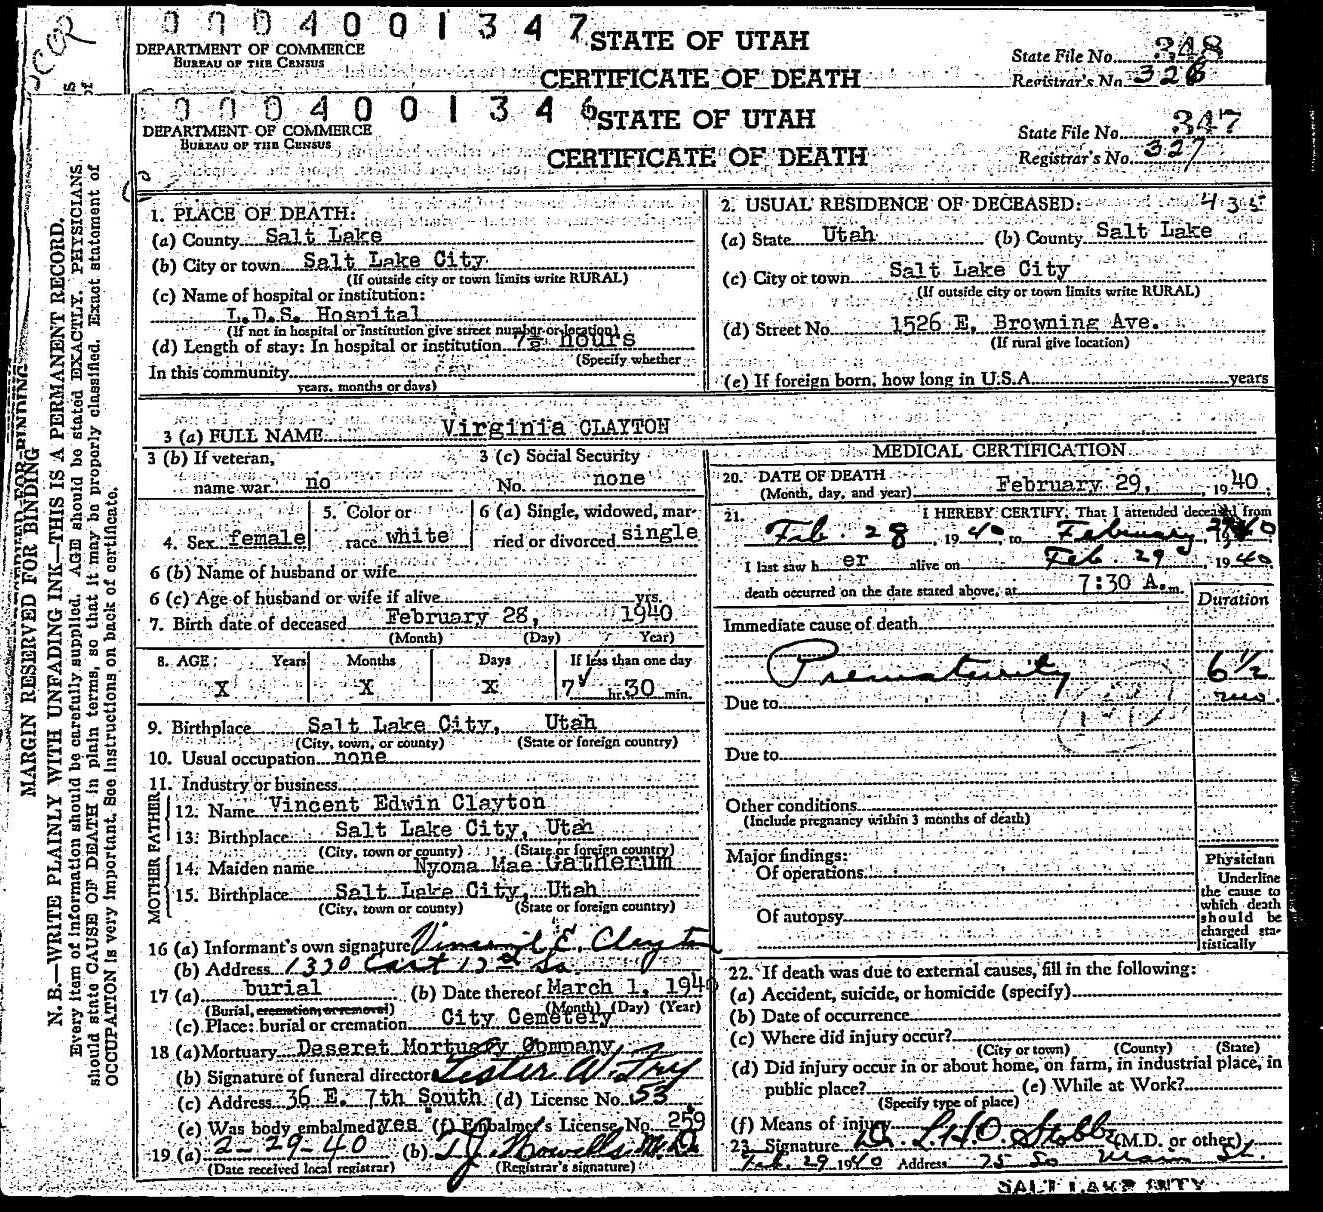 0004001347
DEPARTMENT OF COMMERCE
BUREAU OF THE CENSUS
STATE OF UTAH
CERTIFICATE OF DEATH
State File No. 348
Registrar's No. 326
0004001346
DEPARTMENT OF COMMERCE
BUREAU OF THE CENSUS
STATE OF UTAH
CERTIFICATE OF DEATH
State File No. 347
Registrar's No. 327
MARGIN RESERVED FOR BINDING
N. B.—WRITE PLAINLY WITH UNFADING INK—THIS IS A PERMANENT RECORD.
Every item of information should be carefully supplied. AGE should be stated EXACTLY. PHYSICIANS
should state CAUSE OF DEATH in plain terms, so that it may be properly classified. Exact statement of
OCCUPATION is very important. See instructions on back of certificate.
1. PLACE OF DEATH:
(a) County Salt Lake
(b) City or town Salt Lake City
(If outside city or town limits write RURAL)
(c) Name of hospital or institution:
L.D.S. Hospital
(If not in hospital or institution give street number or location)
(d) Length of stay: In hospital or institution 7½ hours
(Specify whether
In this community
years, months or days)
2. USUAL RESIDENCE OF DECEASED: 435
(a) State Utah (b) County Salt Lake
(c) City or town Salt Lake City
(If outside city or town limits write RURAL)
(d) Street No. 1526 E. Browning Ave.
(If rural give location)
(e) If foreign born, how long in U.S.A. years
3 (a) FULL NAME Virginia CLAYTON
3 (b) If veteran,
name war no
3 (c) Social Security
No. none
4. Sex female
5. Color or
race white
6 (a) Single, widowed, mar-
ried or divorced single
6 (b) Name of husband or wife
6 (c) Age of husband or wife if alive yrs.
7. Birth date of deceased February 28, 1940
(Month) (Day) Year)
8. AGE: Years Months Days If less than one day
X X X 7 hr. 30 min.
9. Birthplace Salt Lake City, Utah
(City, town, or county) (State or foreign country)
10. Usual occupation none
11. Industry or business
FATHER
12. Name Vincent Edwin Clayton
13. Birthplace Salt Lake City, Utah
(City, town or county) (State or foreign country)
MOTHER
14. Maiden name Nyoma Mae Gatherum
15. Birthplace Salt Lake City, Utah
(City, town or county) (State or foreign country)
16 (a) Informant's own signature Vincent E. Clayton
(b) Address 1330 East 13 So
17 (a) burial (b) Date thereof March 1, 1940
(Burial, cremation, or removal) (Month) (Day) (Year)
(c) Place: burial or cremation City Cemetery
18 (a) Mortuary Deseret Mortuary Company
(b) Signature of funeral director Lester A. Fry
(c) Address 36 E. 7th South (d) License No. 53
(e) Was body embalmed? yes (f) Embalmer's License No. 259
19 (a) 2-29-40 (b) T.J. Howells M.D.
(Date received local registrar) (Registrar's signature)
MEDICAL CERTIFICATION
20. DATE OF DEATH
(Month, day, and year) February 29, 1940;
21. I HEREBY CERTIFY, That I attended deceased from
Feb. 28, 1940, to February 29 1940
I last saw h er alive on Feb. 29, 1940
death occurred on the date stated above, at 7:30 A.m.
Duration
Immediate cause of death
Prematurity 6 1/2
mo.
Due to
Due to
Other conditions
(Include pregnancy within 3 months of death)
Major findings:
Of operations
Of autopsy
Physician
Underline
the cause to
which death
should be
charged sta-
tistically
22. If death was due to external causes, fill in the following:
(a) Accident, suicide, or homicide (specify)
(b) Date of occurrence
(c) Where did injury occur?
(City or town) (County) (State)
(d) Did injury occur in or about home, on farm, in industrial place, in
public place? (e) While at Work?
(Specify type of place)
(f) Means of injury
23. Signature (M.D. or other)
Feb. 29 1940 Address 75 So Main St.
SALT LAKE CITY